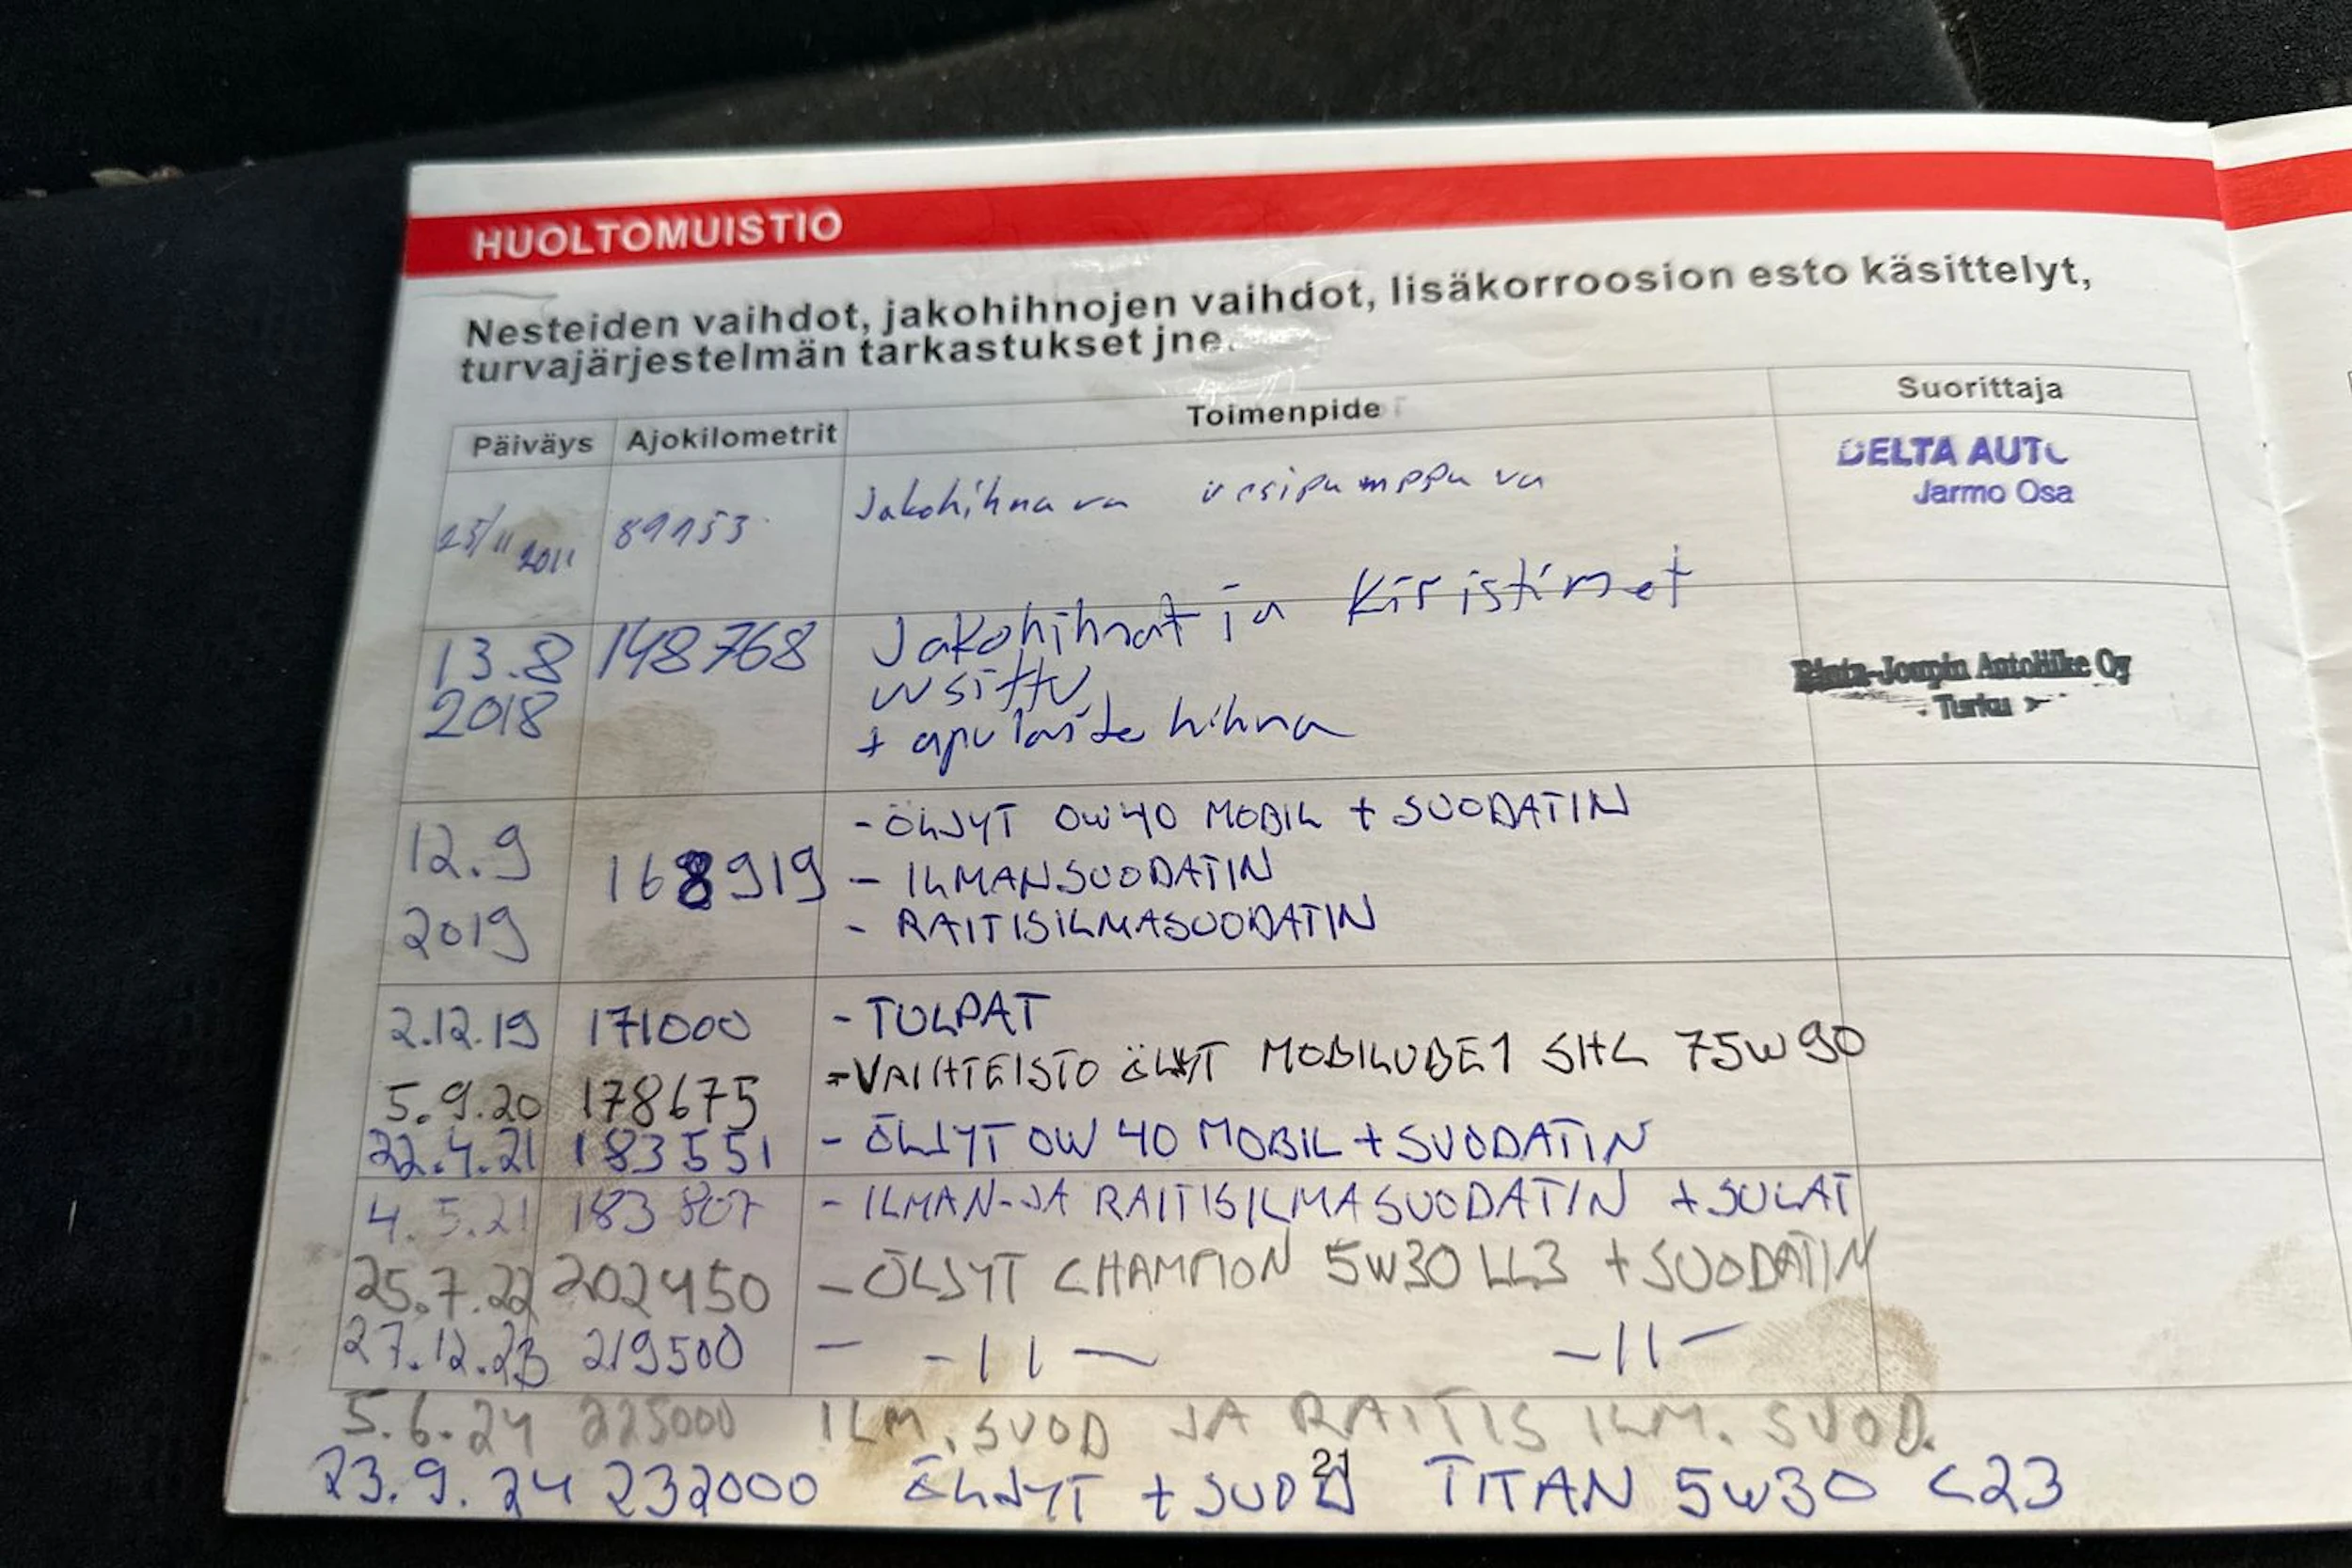 HUOLTOMUISTIO
Nesteiden vaihdot, jakohihnojen vaihdot, lisäkorroosion esto käsittelyt,
turvajärjestelmän tarkastukset jne.
Päiväys Ajokilometrit Toimenpide Suorittaja
25/11 2011 89153 Jakohihna va vesipumppu va DELTA AUTO
Jarmo Osa
13.8 148768 Jakohihnat ja Kiristimet
2018 uusittu
+ apulaite hihna
Rinta-Joupin Autoliike Oy
Turku
12.9 - ÖLJYT 0W40 MOBIL + SUODATIN
168919 - ILMANSUODATIN
2019 - RAITISILMASUODATIN
2.12.19 171000 - TULPAT
5.9.20 178675 - VAIHTEISTO ÖLJYT MOBILUBE 1 SHC 75W90
22.4.21 183551 - ÖLJYT 0W40 MOBIL + SUODATIN
4.5.21 183807 - ILMAN-JA RAITISILMASUODATIN + SULAT
25.7.22 202450 - ÖLJYT CHAMPION 5W30 LL3 + SUODATIN
27.12.23 219500 - -11- -11-
5.6.24 225000 ILM. SUOD JA RAITIS ILM. SUOD.
23.9.24 232000 ÖLJYT + SUOD TITAN 5W30 C23
21